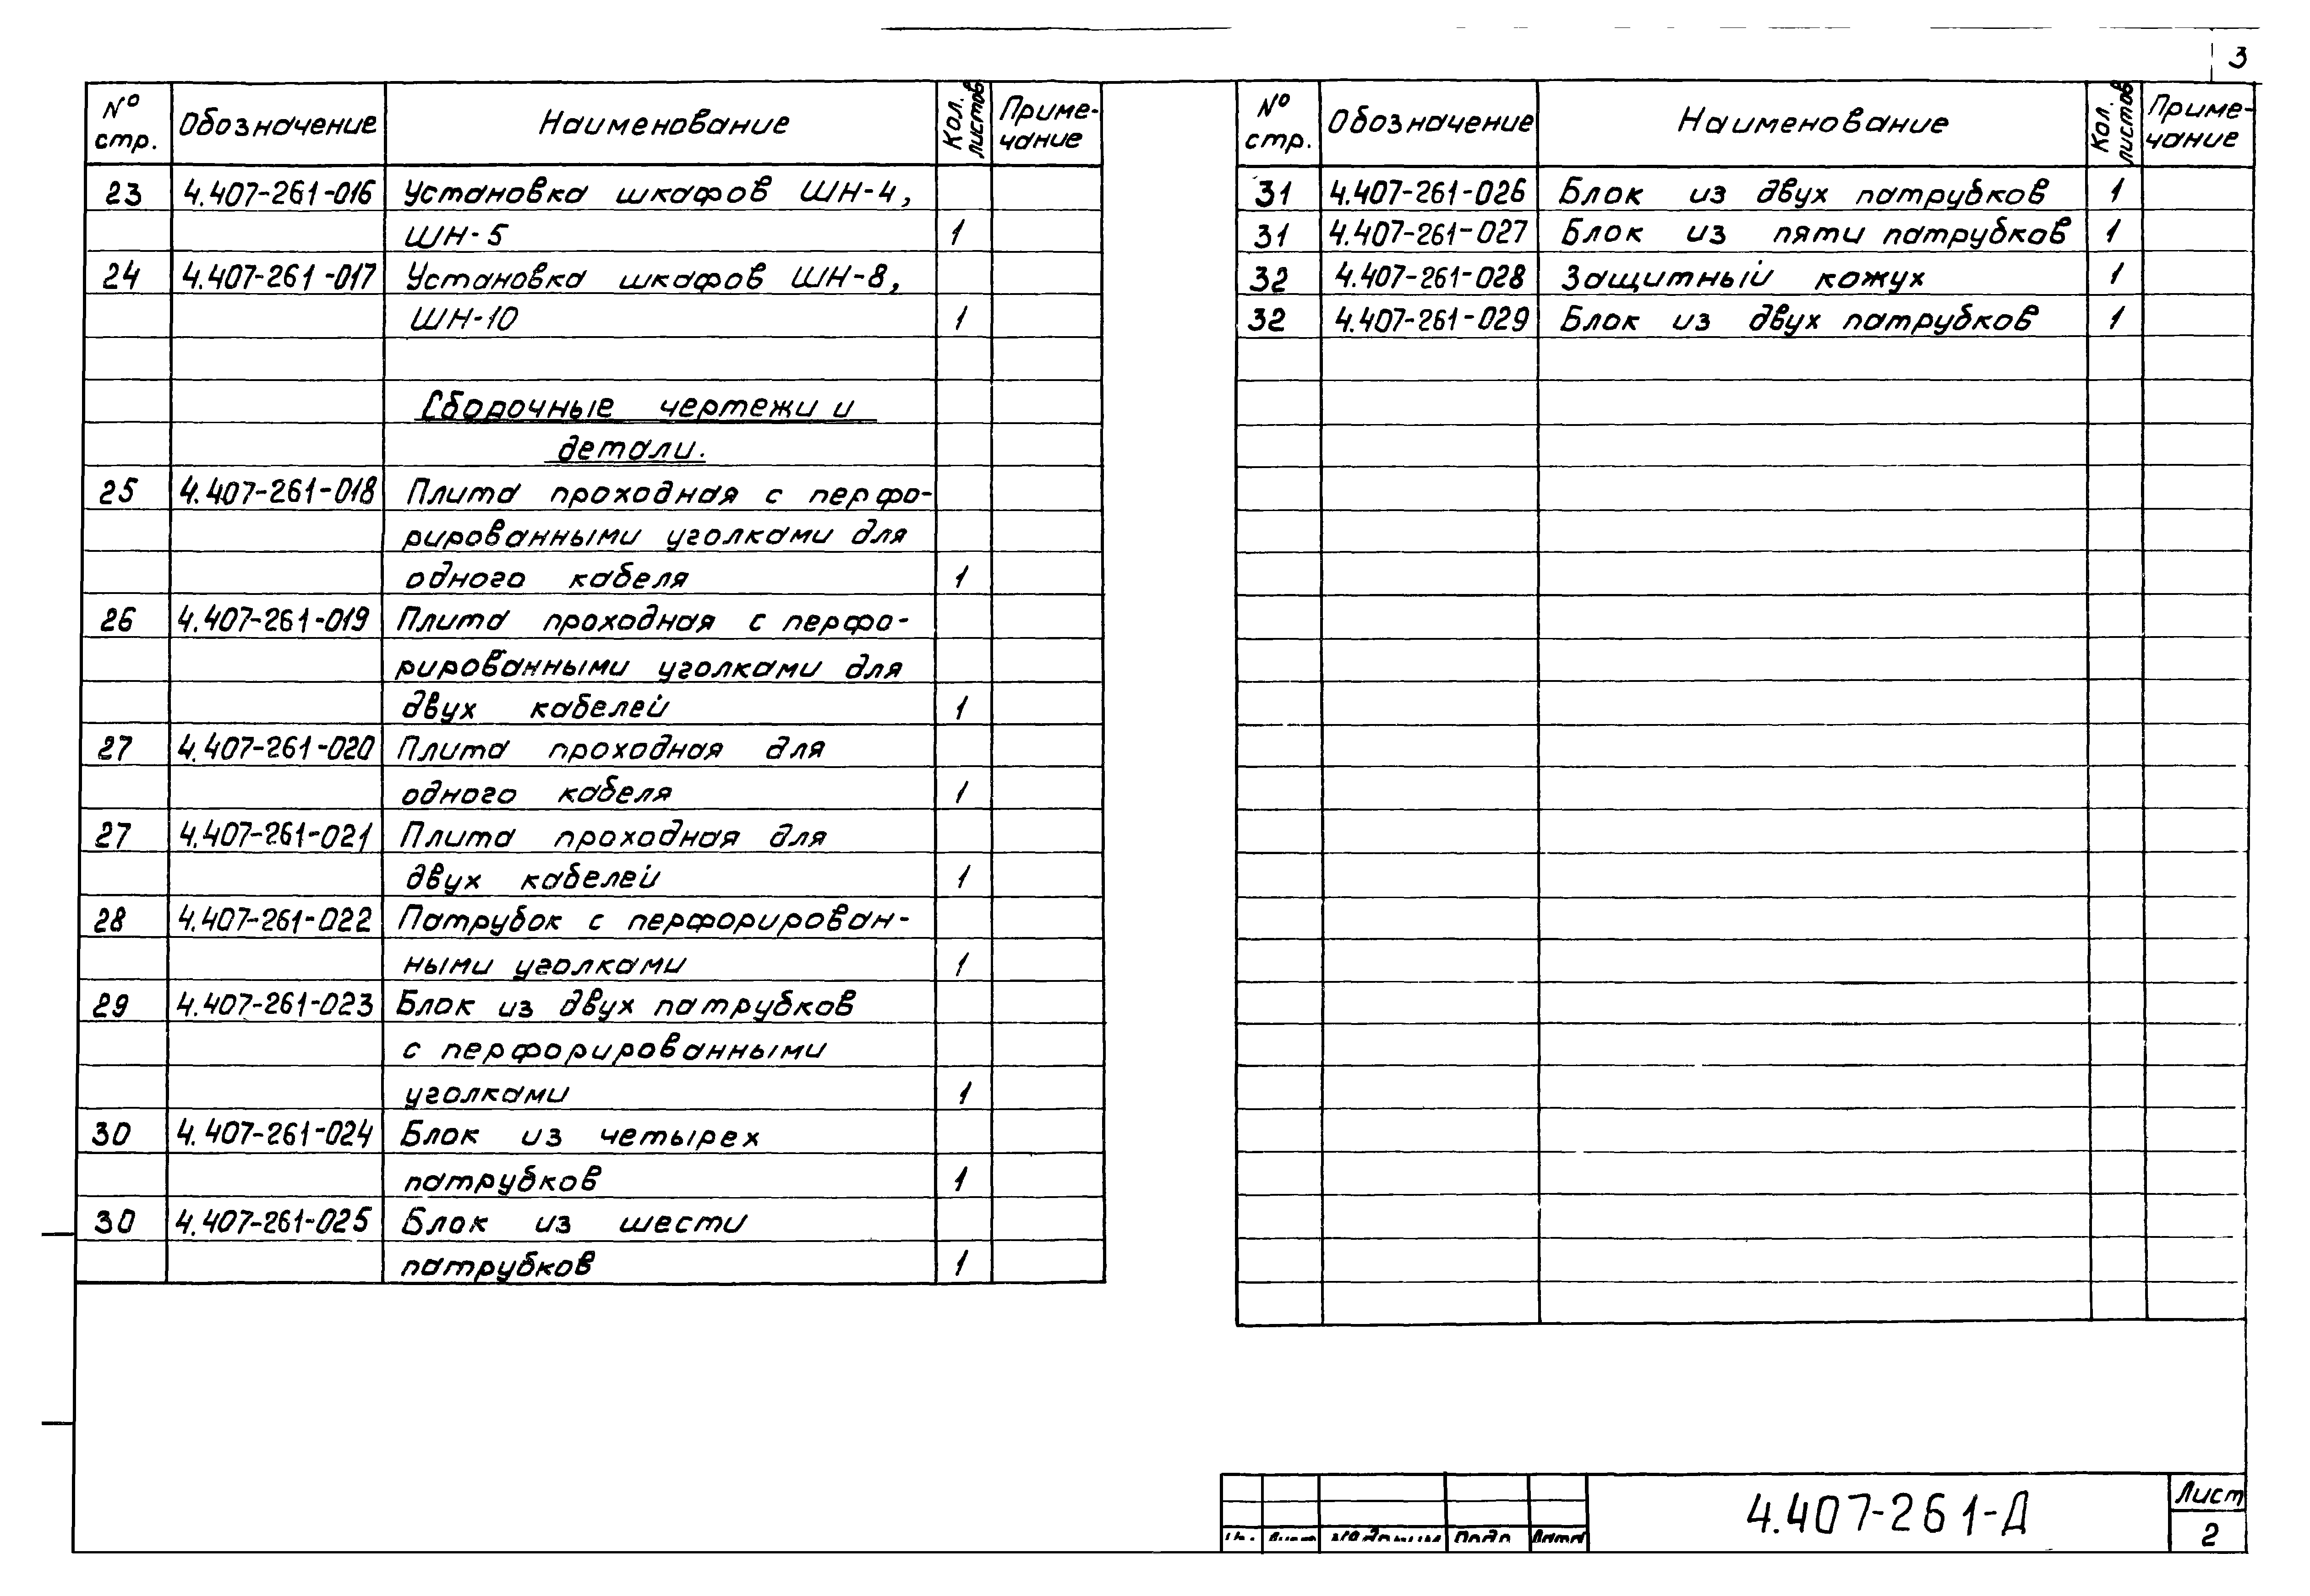 3
№ стр. Обозначение Наименование Кол. листов Приме-чание
23 4.407-261-016 Установка шкафов ШН-4,
ШН-5 1
24 4.407-261-017 Установка шкафов ШН-8,
ШН-10 1
Сборочные чертежи и
детали.
25 4.407-261-018 Плита проходная с перфо-
рированными уголками для
одного кабеля 1
26 4.407-261-019 Плита проходная с перфо-
рированными уголками для
двух кабелей 1
27 4.407-261-020 Плита проходная для
одного кабеля 1
27 4.407-261-021 Плита проходная для
двух кабелей 1
28 4.407-261-022 Патрубок с перфорирован-
ными уголками 1
29 4.407-261-023 Блок из двух патрубков
с перфорированными
уголками 1
30 4.407-261-024 Блок из четырех
патрубков 1
30 4.407-261-025 Блок из шести
патрубков 1
№ стр. Обозначение Наименование Кол. листов Приме-чание
31 4.407-261-026 Блок из двух патрубков 1
31 4.407-261-027 Блок из пяти патрубков 1
32 4.407-261-028 Защитный кожух 1
32 4.407-261-029 Блок из двух патрубков 1
4.407-261-Д
Лист
2
Лист Подп Дата